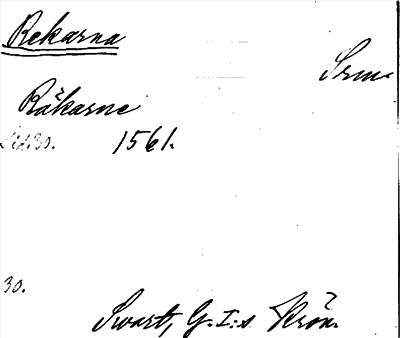 Rekarna
Srm.
Räkarne
Sid. 30. 1561.
30.
Swart, G. I:s Krön.